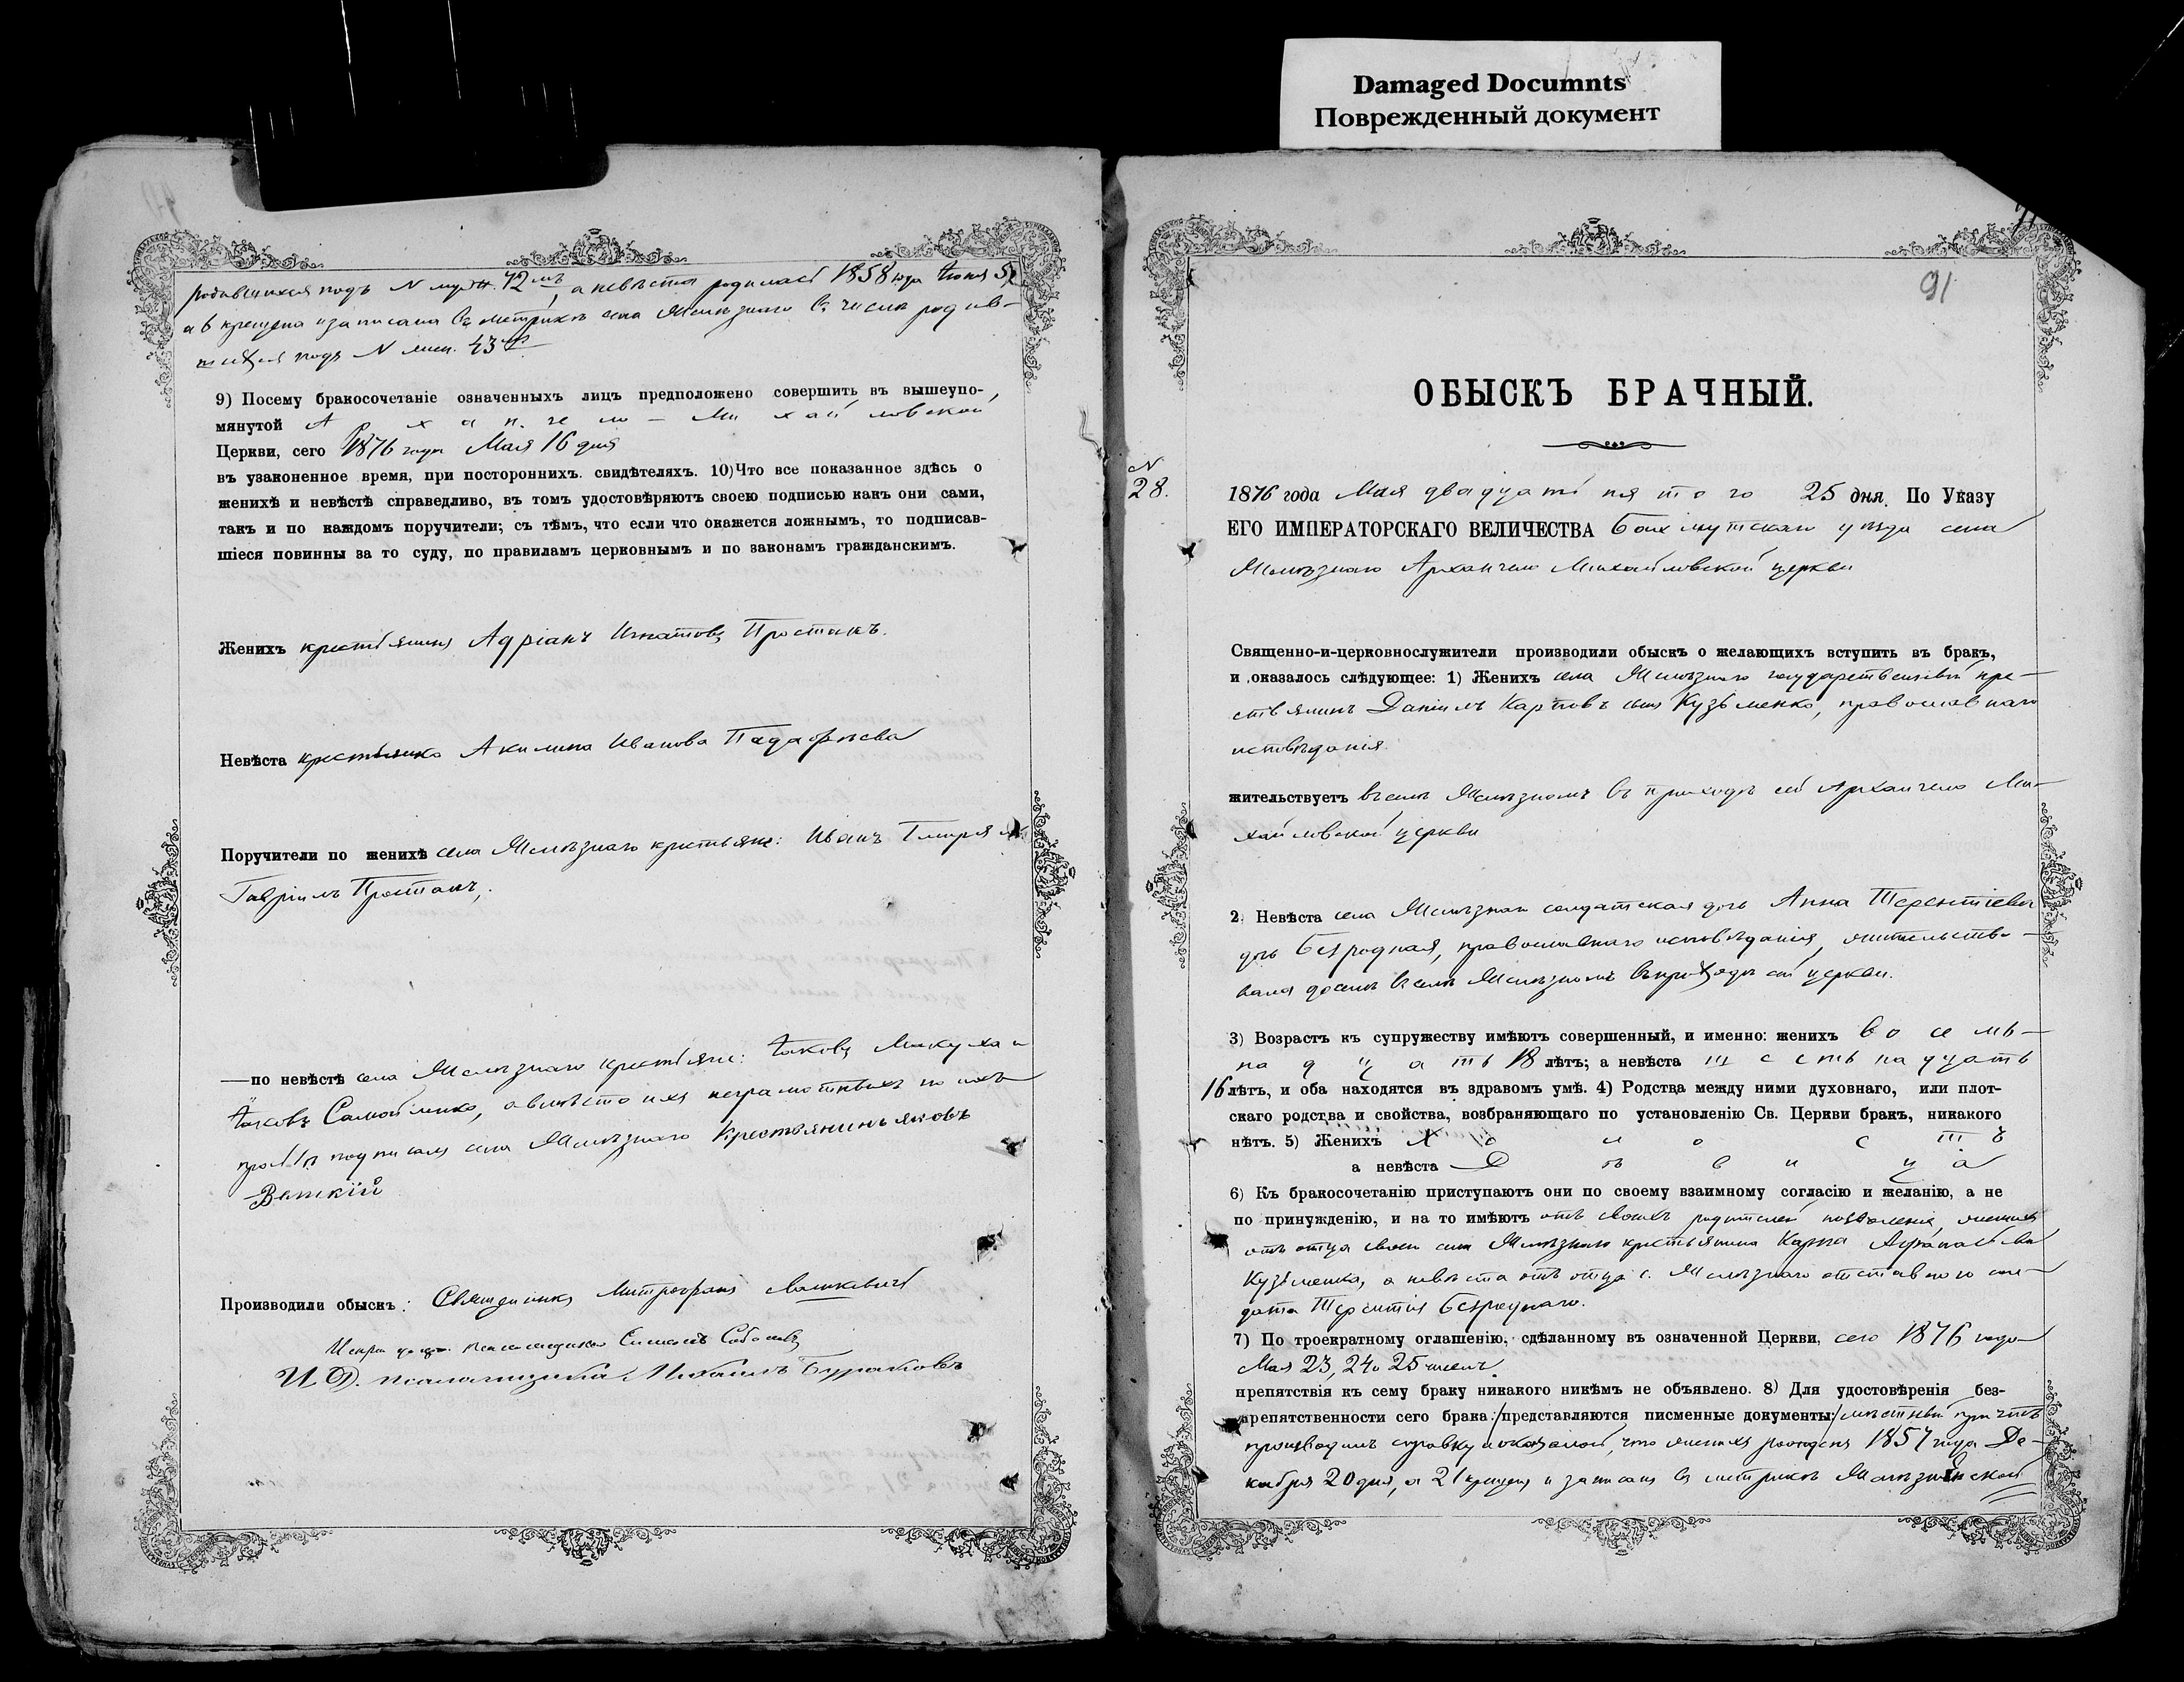 Damaged Documnts
Поврежденный документ
родившихся подъ N муж. 72мъ, а невѣста родилась 1858 года Іюня 5,
а 6 крещена и записана въ метрикѣ села Желѣзнаго въ числѣ родив-
шихся подъ N жен. 43
9) Посему бракосочетаніе означенныхъ лицъ предположено совершить въ вышеупо-
мянутой Архангело-Михайловской
Церкви, сего 1876 года Мая 16 дня
въ узаконенное время, при постороннихъ свидѣтеляхъ. 10) Что все показанное здѣсь о
женихѣ и невѣстѣ справедливо, въ томъ удостовѣряютъ своею подписью какъ они сами,
такъ и по каждомъ поручители; съ тѣмъ, что если что окажется ложнымъ, то подписав-
шіеся повинны за то суду, по правиламъ церковнымъ и по законамъ гражданскимъ.
Женихъ крестьянинъ Адріанъ Игнатовъ Простакъ.
Невѣста крестьянка Акилина Иванова
Поручители по женихѣ села Желѣзнаго крестьяне: Иванъ
Гавріилъ Простакъ,
— по невѣстѣ села Желѣзнаго крестьяне: Іаковъ и
Іаковъ Самойленко, а вмѣсто ихъ неграмотныхъ по ихъ
прозьбѣ подписалъ села Желѣзнаго Крестьянинъ Яковъ
Производили обыскъ: Священникъ Митрофанъ
псаломщика Симеонъ
И. Д. псаломщика Михаилъ Бураковъ
91
ОБЫСКЪ БРАЧНЫЙ.
N
28.
1876 года Мая двадцать пятаго 25 дня. По Указу
ЕГО ИМПЕРАТОРСКАГО ВЕЛИЧЕСТВА Бахмутскаго уѣзда села
Желѣзнаго Архангело Михайловской церкви
Священно-и-церковнослужители производили обыскъ о желающихъ вступить въ бракъ,
и оказалось слѣдующее: 1) Женихъ села Желѣзнаго государственный кре-
стьянинъ Даніилъ Карповъ сынъ Кузьменко, православнаго
исповѣданія.
жительствуетъ въ селѣ Желѣзномъ въ приходѣ сей Архангело Ми-
хайловской церкви
2. Невѣста села Желѣзнаго солдатская дочь Анна Терентіева
дочь Безродная, православнаго исповѣданія, жительство-
вала доселѣ въ селѣ Желѣзномъ въ приходѣ сей церкви.
3) Возрастъ къ супружеству имѣютъ совершенный, и именно: женихъ восемь-
надцать 18 лѣтъ; а невѣста шестьнадцать
16 лѣтъ, и оба находятся въ здравомъ умѣ. 4) Родства между ними духовнаго, или плот-
скаго родства и свойства, возбраняющаго по установленію Св. Церкви бракъ, никакого
нѣтъ. 5) Женихъ Холостъ
а невѣста Дѣвица
6) Къ бракосочетанію приступаютъ они по своему взаимному согласію и желанію, а не
по принужденію, и на то имѣютъ отъ своихъ родителей позволеніе, женихъ
отъ отца своего села Желѣзнаго крестьянина Карпа Афанасьева
Кузьменка, а невѣста отъ отца с. Желѣзнаго отставного сол-
дата Терентія Безроднаго.
7) По троекратному оглашенію, сдѣланному въ означенной Церкви, сего 1876 года
Мая 23, 24 и 25 чиселъ
препятствія къ сему браку никакого никѣмъ не объявлено. 8) Для удостовѣренія без-
препятственности сего брака: /представляются писменные документы:/ мѣстный причтъ
производилъ справку и оказалось, что женихъ рожденъ 1857 года Де-
кабря 20 дня, а 21 крещенъ и записанъ въ метрикѣ Желѣзнянской